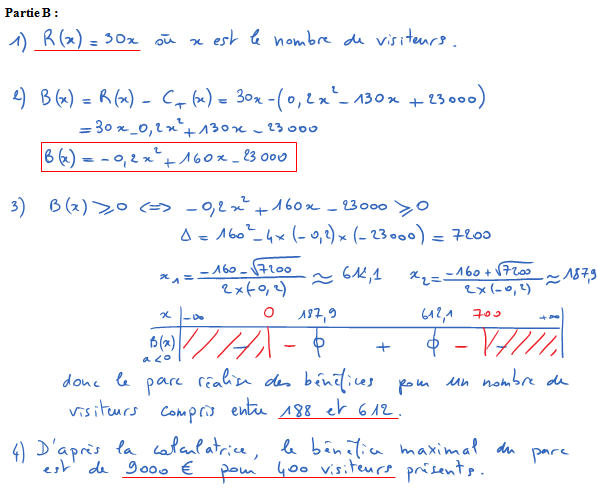 Partie B :
1) R(x) = 30x où x est le nombre de visiteurs.
2) B(x) = R(x) - C_T(x) = 30x - (0,2x² - 130x + 23000)
= 30x - 0,2x² + 130x - 23000
B(x) = - 0,2x² + 160x - 23000
3) B(x) ⩾ 0 <=> - 0,2x² + 160x - 23000 ⩾ 0
Δ = 160² - 4 × (-0,2) × (-23000) = 7200
x₁ = (-160 - √7200) / (2×(-0,2)) ≈ 612,1 x₂ = (-160 + √7200) / (2×(-0,2)) ≈ 187,9
x -∞ 0 187,9 612,1 700 +∞
B(x) - - 0 + 0 - -
a<0
donc le parc réalise des bénéfices pour un nombre de
visiteurs compris entre 188 et 612.
4) D'après la calculatrice, le bénéfice maximal du parc
est de 9000 € pour 400 visiteurs présents.